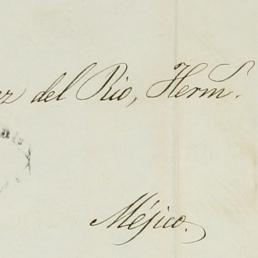 ez del Rio, Herms.
Méjico.